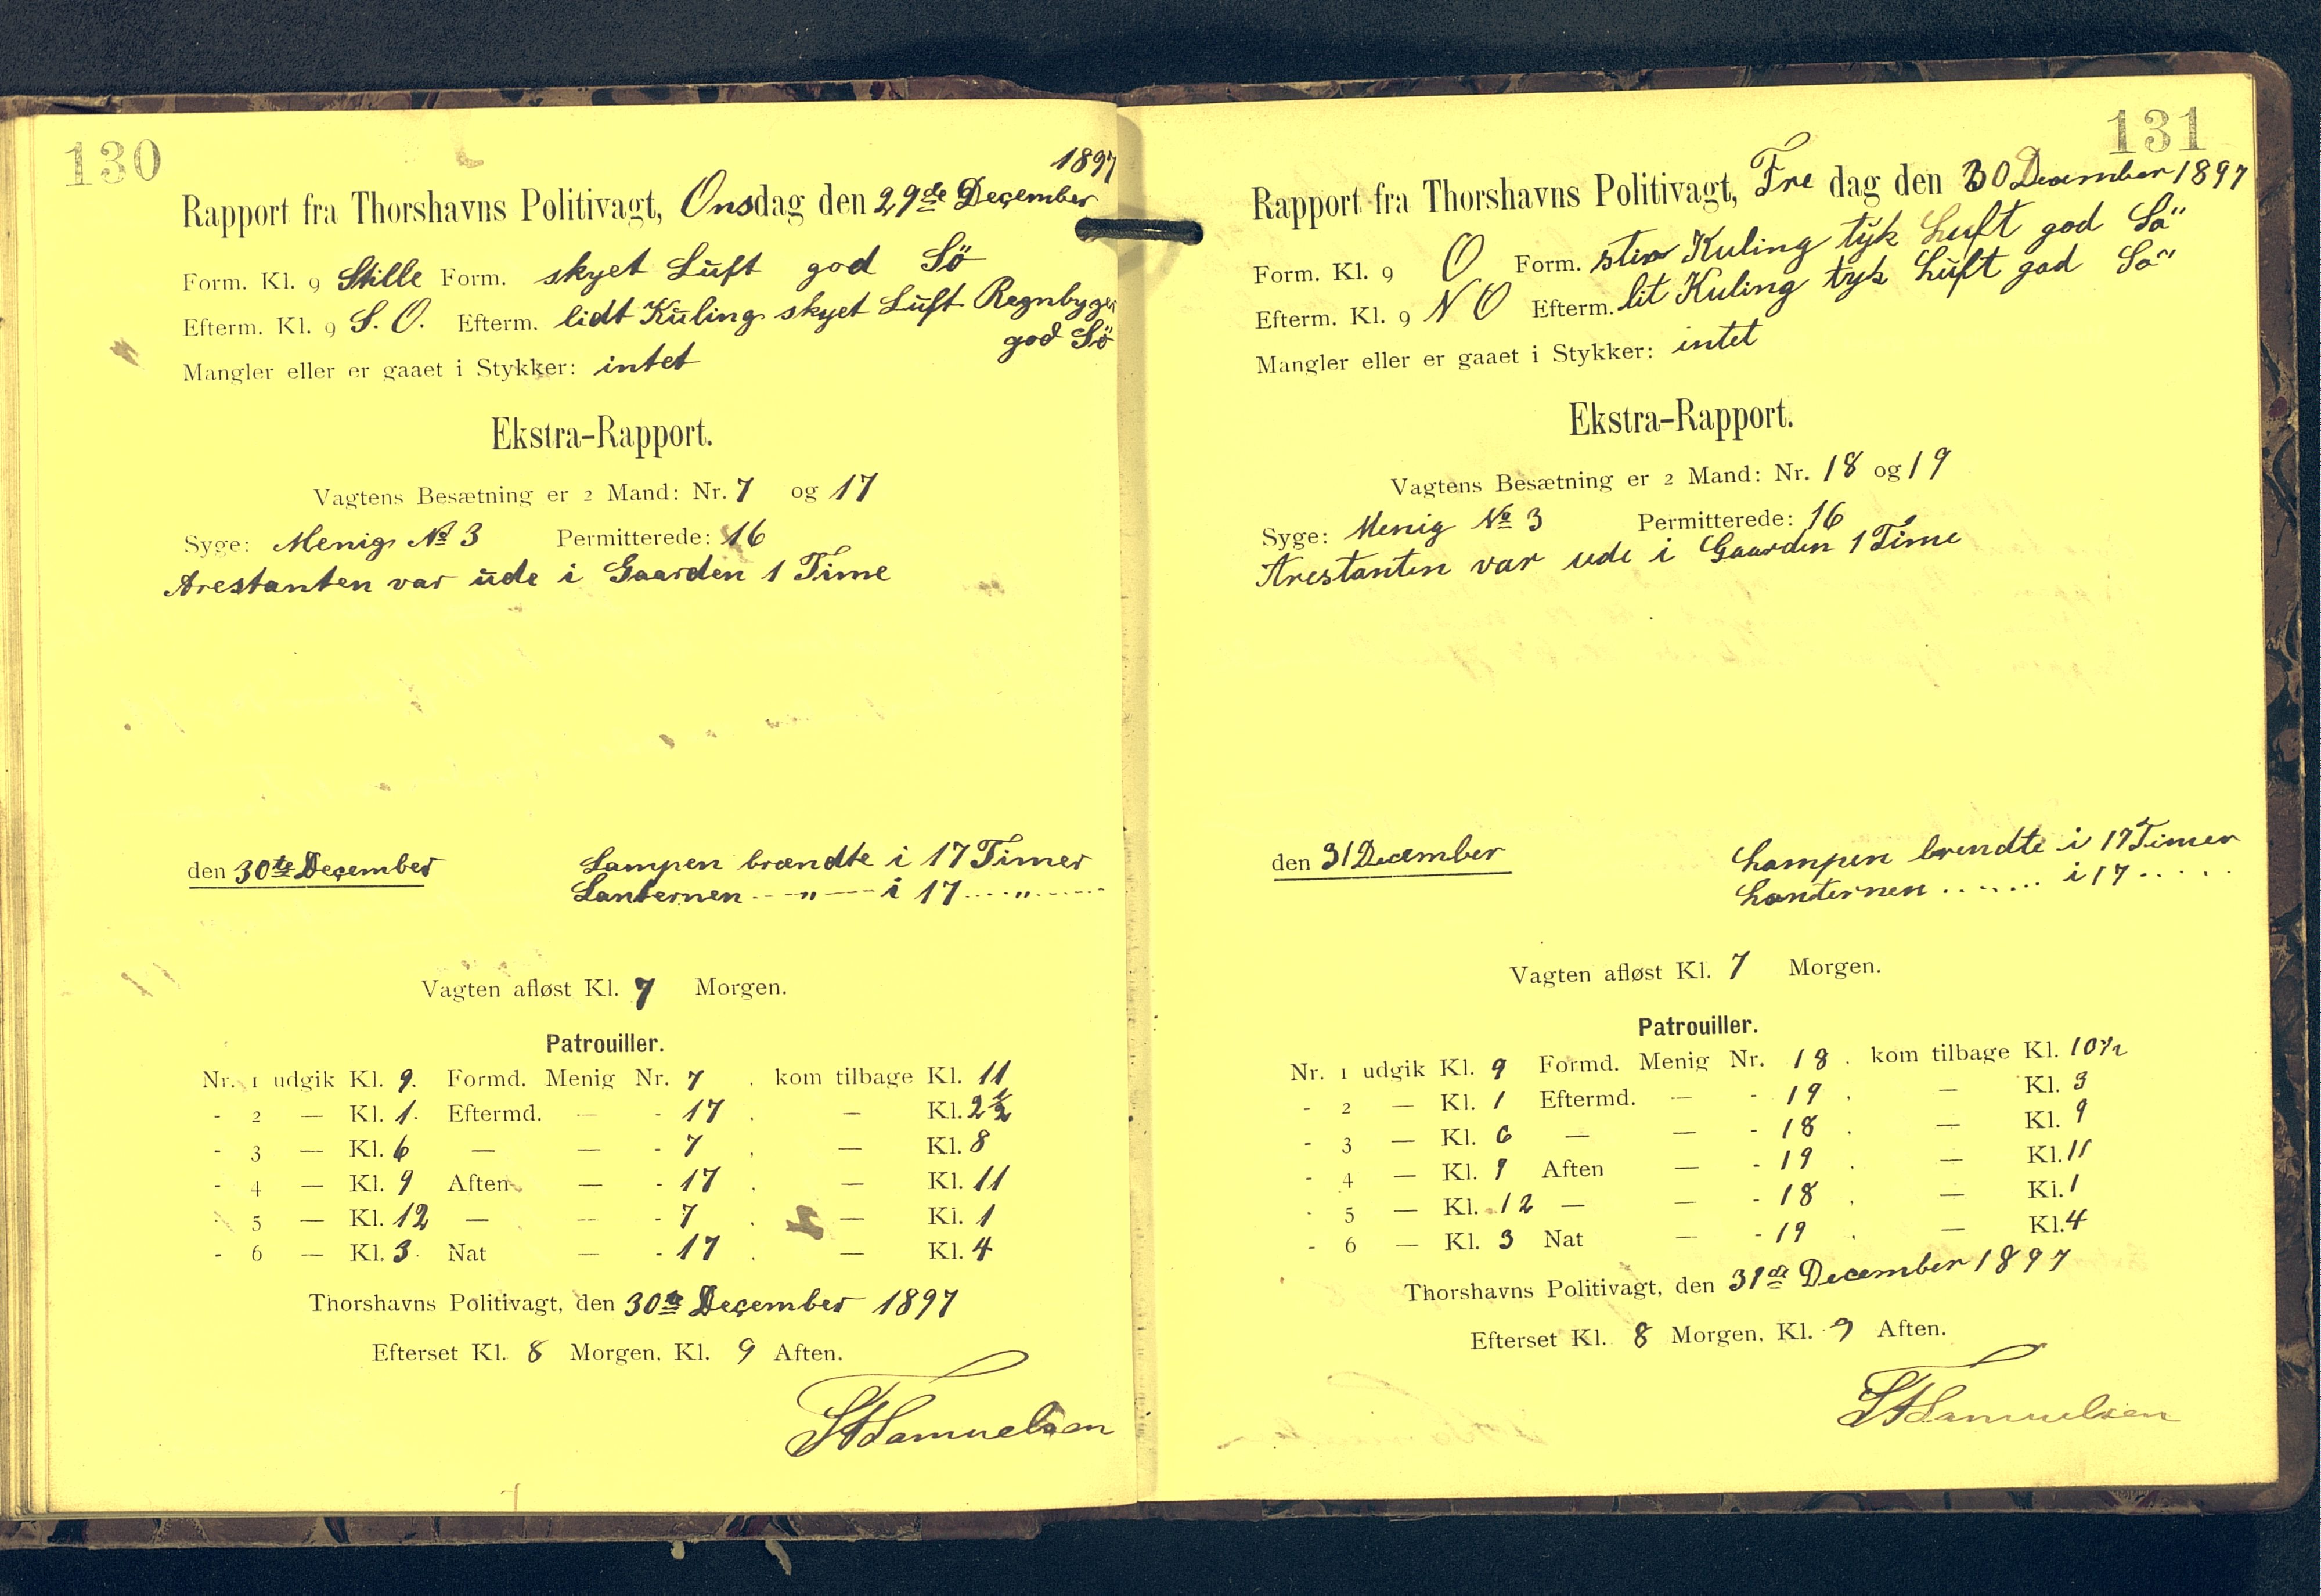 130
1897
Rapport fra Thorshavns Politivagt, Onsdag den 29de December
Form. Kl. 9 Stille Form. skyet Luft god Sö
Efterm. Kl. 9 S. O. Efterm. lidt Kuling skyet Luft Regnbyger
god Sö
Mangler eller er gaaet i Stykker: intet
Ekstra-Rapport.
Vagtens Besætning er 2 Mand: Nr. 7 og 17
Syge: Menig No 3 Permitterede: 16
Arestanten var ude i Gaarden 1 Time
den 30te December Lampen brændte i 17 Timer
Lanternen --- " --- i 17 .... " ......
Vagten afløst Kl. 7 Morgen.
Patrouiller.
Nr. 1 udgik Kl. 9. Formd. Menig Nr. 7 . kom tilbage Kl. 11
- 2 — Kl. 1. Eftermd. — - 17 . — Kl. 2 1/2
- 3 — Kl. 6 — — - 7 . — Kl. 8
- 4 — Kl. 9 Aften — - 17 . — Kl. 11
- 5 — Kl. 12 — — - 7 . — Kl. 1
- 6 — Kl. 3. Nat — - 17 . — Kl. 4
Thorshavns Politivagt, den 30te December 1897
Efterset Kl. 8 Morgen, Kl. 9 Aften.
Samuelsen
131
Rapport fra Thorshavns Politivagt, Fre dag den 30 December 1897
Form. Kl. 9 O Form. stiv Kuling tyk Luft god Sö
Efterm. Kl. 9 N O Efterm. lit Kuling tyk Luft god Sö
Mangler eller er gaaet i Stykker: intet
Ekstra-Rapport.
Vagtens Besætning er 2 Mand: Nr. 18 og 19
Syge: Menig No 3 Permitterede: 16
Arestanten var ude i Gaarden 1 Time
den 31 December Lampen brendte i 17 Timer
Lanternen ....... i 17 .....
Vagten afløst Kl. 7 Morgen.
Patrouiller.
Nr. 1 udgik Kl. 9 Formd. Menig Nr. 18 . kom tilbage Kl. 10 1/2
- 2 — Kl. 1 Eftermd. — - 19 . — Kl. 3
- 3 — Kl. 6 — — - 18 . — Kl. 9
- 4 — Kl. 9 Aften — - 19 . — Kl. 11
- 5 — Kl. 12 — — - 18 . — Kl. 1
- 6 — Kl. 3 Nat — - 19 . — Kl. 4
Thorshavns Politivagt, den 31de December 1897
Efterset Kl. 8 Morgen, Kl. 9 Aften.
Samuelsen